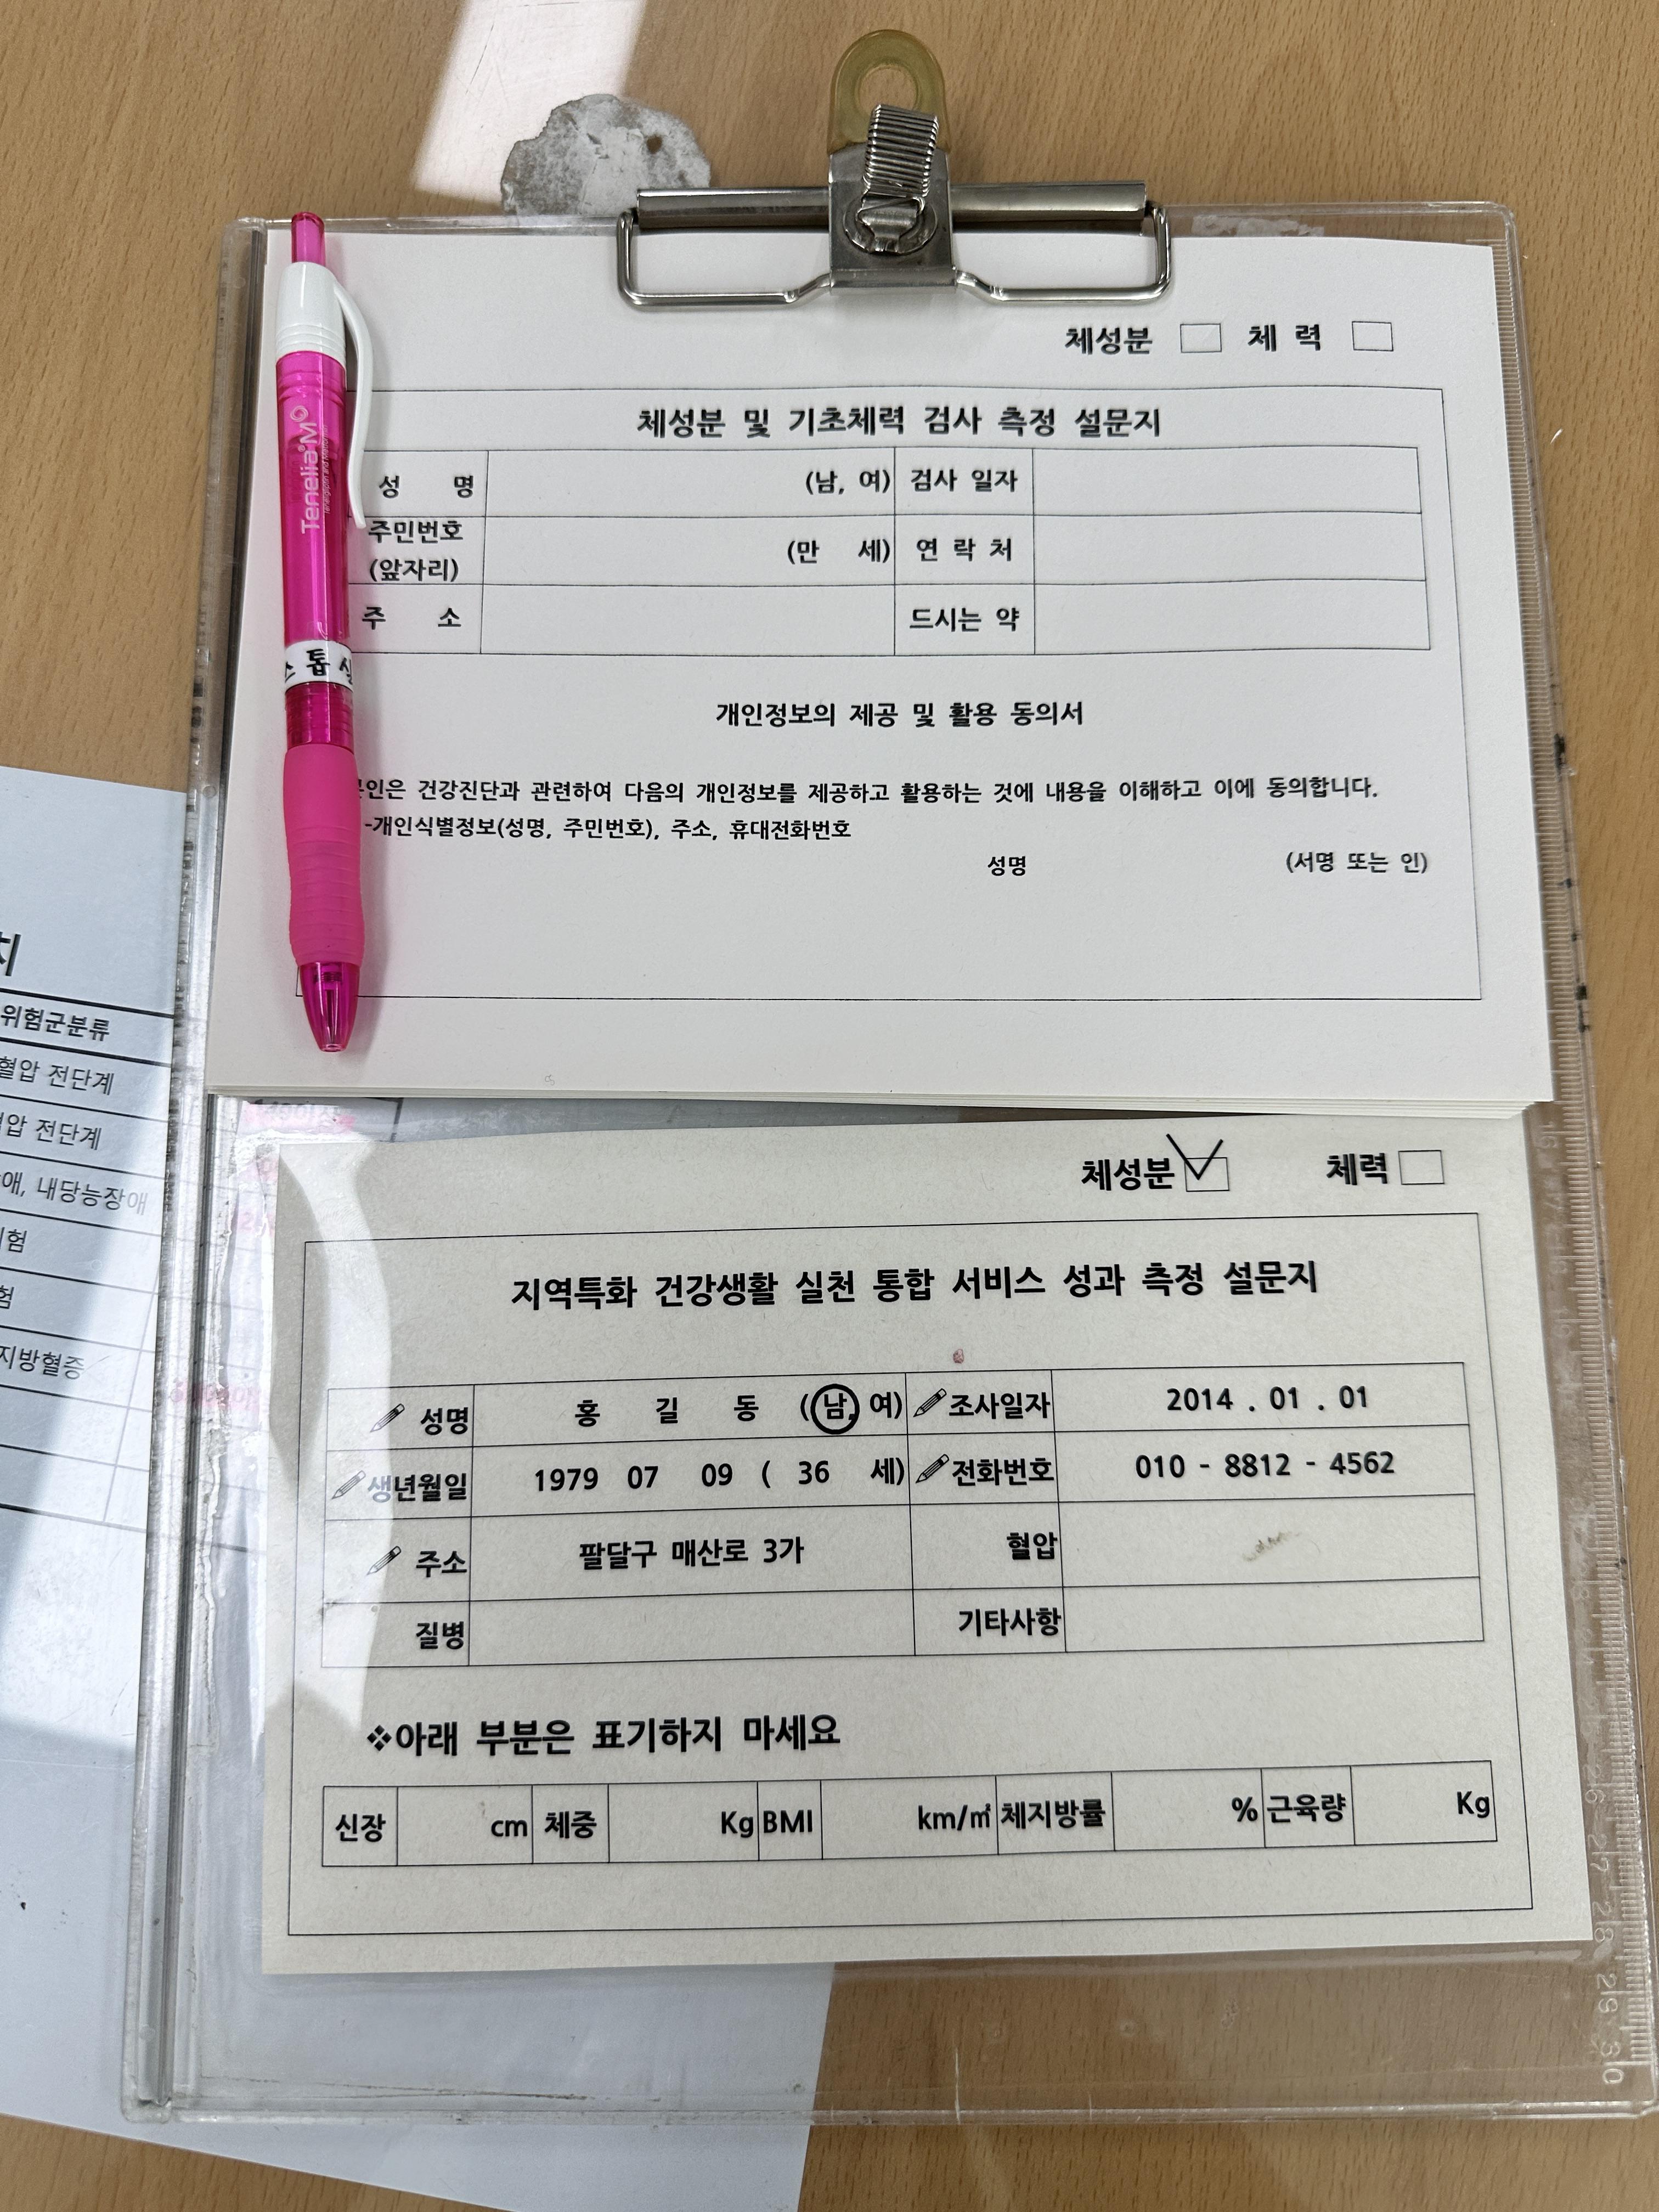 체성분 체 력
체성분 및 기초체력 검사 측정 설문지
성 명 (남, 여) 검사 일자
주민번호
(앞자리) (만 세) 연 락 처
주 소 드시는 약
개인정보의 제공 및 활용 동의서
본인은 건강진단과 관련하여 다음의 개인정보를 제공하고 활용하는 것에 내용을 이해하고 이에 동의합니다.
-개인식별정보(성명, 주민번호), 주소, 휴대전화번호
성명 (서명 또는 인)
Tenelia M
톱
체성분 체력
지역특화 건강생활 실천 통합 서비스 성과 측정 설문지
성명 홍 길 동 (남, 여) 조사일자 2014 . 01 . 01
생년월일 1979 07 09 ( 36 세) 전화번호 010 - 8812 - 4562
주소 팔달구 매산로 3가 혈압
질병 기타사항
❖아래 부분은 표기하지 마세요
신장 cm 체중 Kg BMI km/㎡ 체지방률 % 근육량 Kg
위험군분류
혈압 전단계
압 전단계
애, 내당능장애
험
험
지방혈증
16
17
26
27
28
29
30